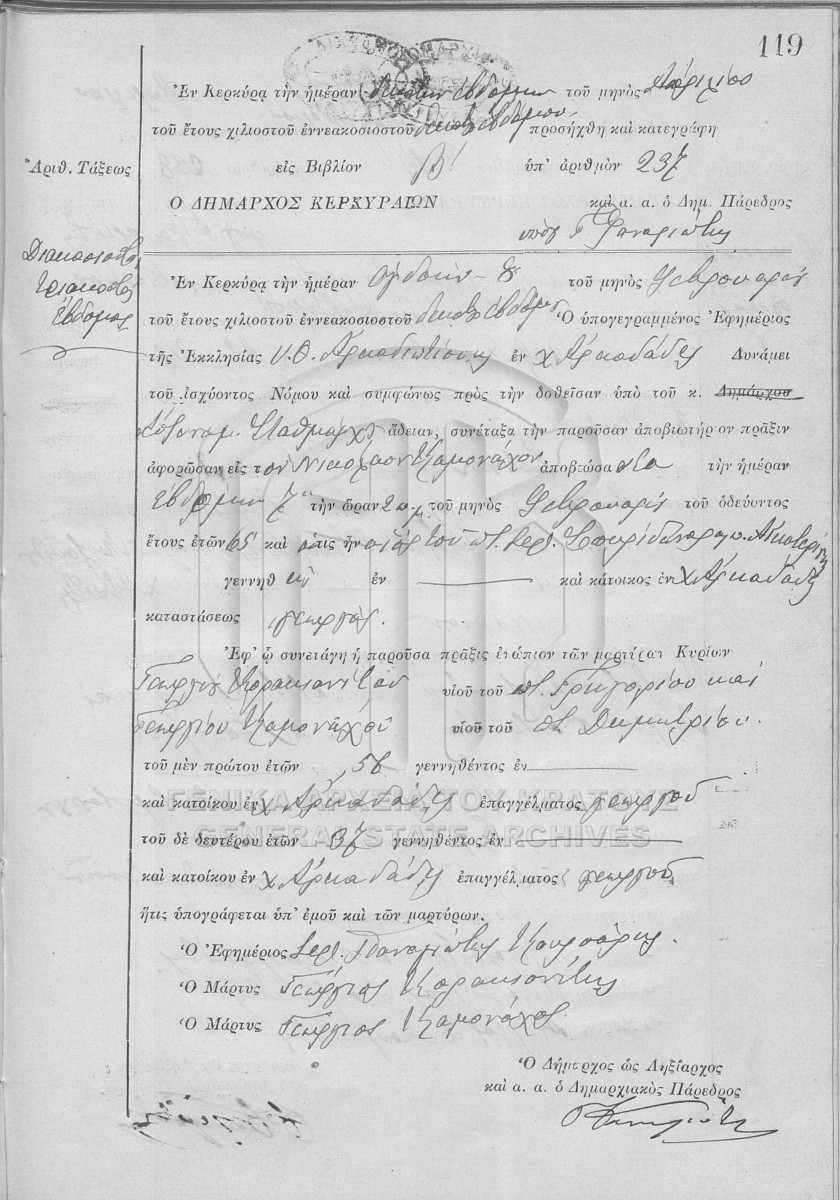 119
Ἐν Κερκύρᾳ τὴν ἡμέραν εἰκοστὴν ἑβδόμην τοῦ μηνὸς Ἀπριλίου
τοῦ ἔτους χιλιοστοῦ ἐννεακοσιοστοῦ δεκάτου ἑβδόμου προσήχθη καὶ κατεγράφη
Ἀριθ. Τάξεως εἰς Βιβλίον Β! ὑπ' ἀριθμὸν 237
Ο ΔΗΜΑΡΧΟΣ ΚΕΡΚΥΡΑΙΩΝ καὶ α. α. ὁ Δημ. Πάρεδρος
Γ Φαναριώτης
Διακοσιοστὸς
τριακοστὸς
ἕβδομος
Ἐν Κερκύρᾳ τὴν ἡμέραν ὀγδόην - 8 τοῦ μηνὸς Φεβρουαρίου
τοῦ ἔτους χιλιοστοῦ ἐννεακοσιοστοῦ δεκάτου ἑβδόμου Ὁ ὑπογεγραμμένος Ἐφημέριος
τῆς Ἐκκλησίας Υ.Θ. Ἀρκαδιωτίσσης ἐν χ Ἀρκαδάδες Δυνάμει
τοῦ ἰσχύοντος Νόμου καὶ συμφώνως πρὸς τὴν δοθεῖσαν ὑπὸ τοῦ κ. Δημάρχου
Ἀστυνομ. Σταθμάρχου ἄδειαν, συνέταξα τὴν παροῦσαν ἀποβιωτήριον πρᾶξιν
ἀφορῶσαν εἰς τὸν Νικόλαον Καμονάχον ἀποβιώσαντα τὴν ἡμέραν
ἑβδόμην 7 τὴν ὥραν 2 μ.μ τοῦ μηνὸς Φεβρουαρίου τοῦ ὁδεύοντος
ἔτους ἐτῶν 65 καὶ ὅστις ἦν υἱὸς τοῦ ποτ. Σπυρίδωνος Αἰκατερίνης
γεννηθεὶς ἐν καὶ κάτοικος ἐν χ Ἀρκαδάδες
καταστάσεως γεωργὸς.
Ἐφ' ᾧ συνετάγη ἡ παροῦσα πρᾶξις ἐνώπιον τῶν μαρτύρων Κυρίων
Γεωργίου Κορακιανίτου υἱοῦ τοῦ ποτ. Γρηγορίου καὶ
Γεωργίου Καμονάχου υἱοῦ τοῦ ποτ. Δημητρίου.
τοῦ μὲν πρώτου ἐτῶν 56 γεννηθέντος ἐν
καὶ κατοίκου ἐν χ Ἀρκαδάδες ἐπαγγέλματος γεωργοῦ
ΓΕΝΙΚΑ ΑΡΧΕΙΑ ΤΟΥ ΚΡΑΤΟΥΣ
GENERAL STATE ARCHIVES
τοῦ δὲ δευτέρου ἐτῶν 37 γεννηθέντος ἐν
καὶ κατοίκου ἐν χ Ἀρκαδάδες ἐπαγγέλματος γεωργοῦ
ἥτις ὑπογράφεται ὑπ' ἐμοῦ καὶ τῶν μαρτύρων.
Ὁ Ἐφημέριος Ἱερ. Παναγιώτης
Ὁ Μάρτυς Γεώργιος Κορακιανίτης
Ὁ Μάρτυς Γεώργιος Καμονάχος
Ὁ Δήμαρχος ὡς Ληξίαρχος
καὶ α. α. ὁ Δημαρχιακὸς Πάρεδρος
Γ Φαναριώτης